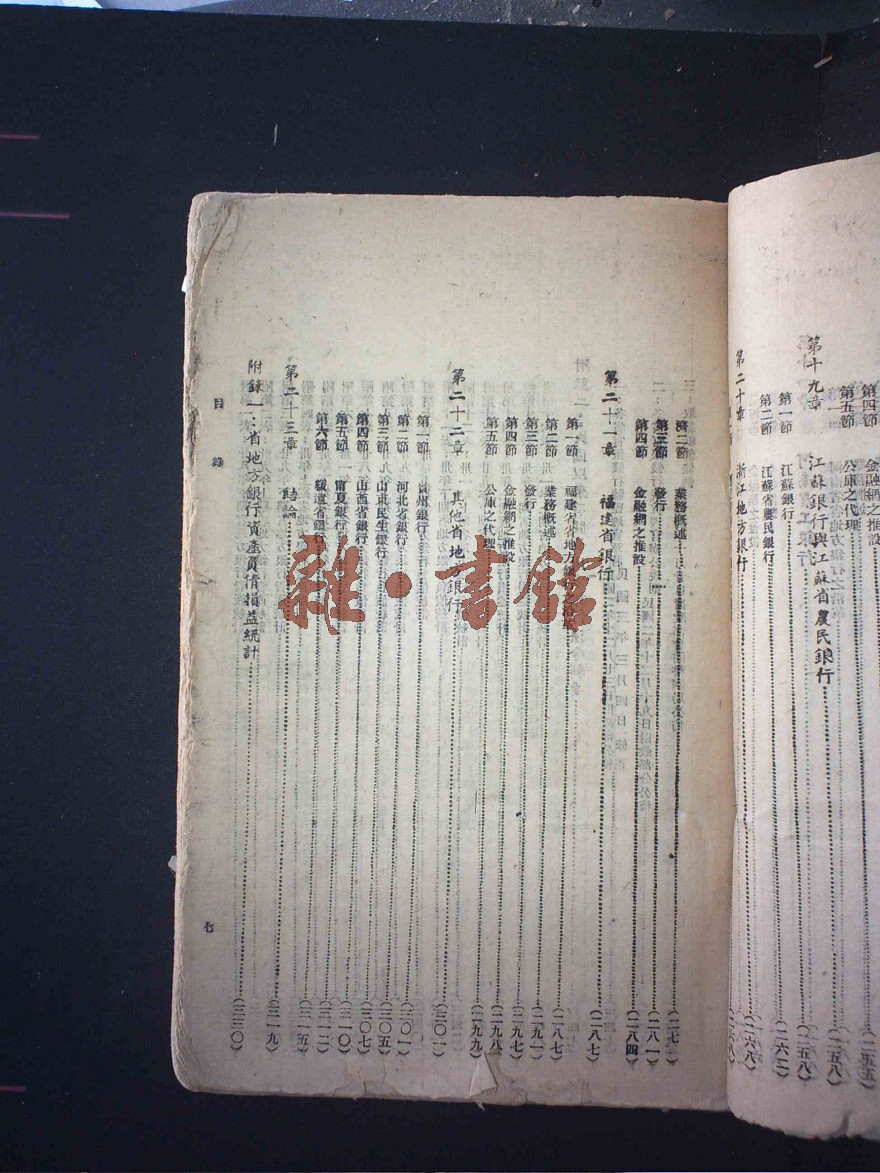 第四節 金融網之推設 (二五五)
第五節 公庫之代理 (二五八)
第十九章 江蘇銀行與江蘇省農民銀行 (二五八)
第一節 江蘇銀行
第二節 江蘇省農民銀行
第二十章 浙江地方銀行
第二節 業務概述
第三節 發行 (二八一)
第四節 金融網之推設 (二八四)
第二十一章 福建省銀行 (二八七)
第一節 福建省省地方銀行之沿革 (二八七)
第二節 業務概述 (二九一)
第三節 發行 (二九七)
第四節 金融網之推設 (二九八)
第五節 公庫之代理 (二九九)
第二十二章 其他省地方銀行 (三〇一)
第一節 貴州銀行
第二節 河北省銀行 (三〇一)
第三節 山東民生銀行 (三〇五)
第四節 山西省銀行 (三〇七)
第五節 甯夏銀行 (三一〇)
第六節 綏遠省銀行 (三一二)
第二十三章 結論
附錄一：省地方銀行資產負債損益統計
目錄
七
雜·書館